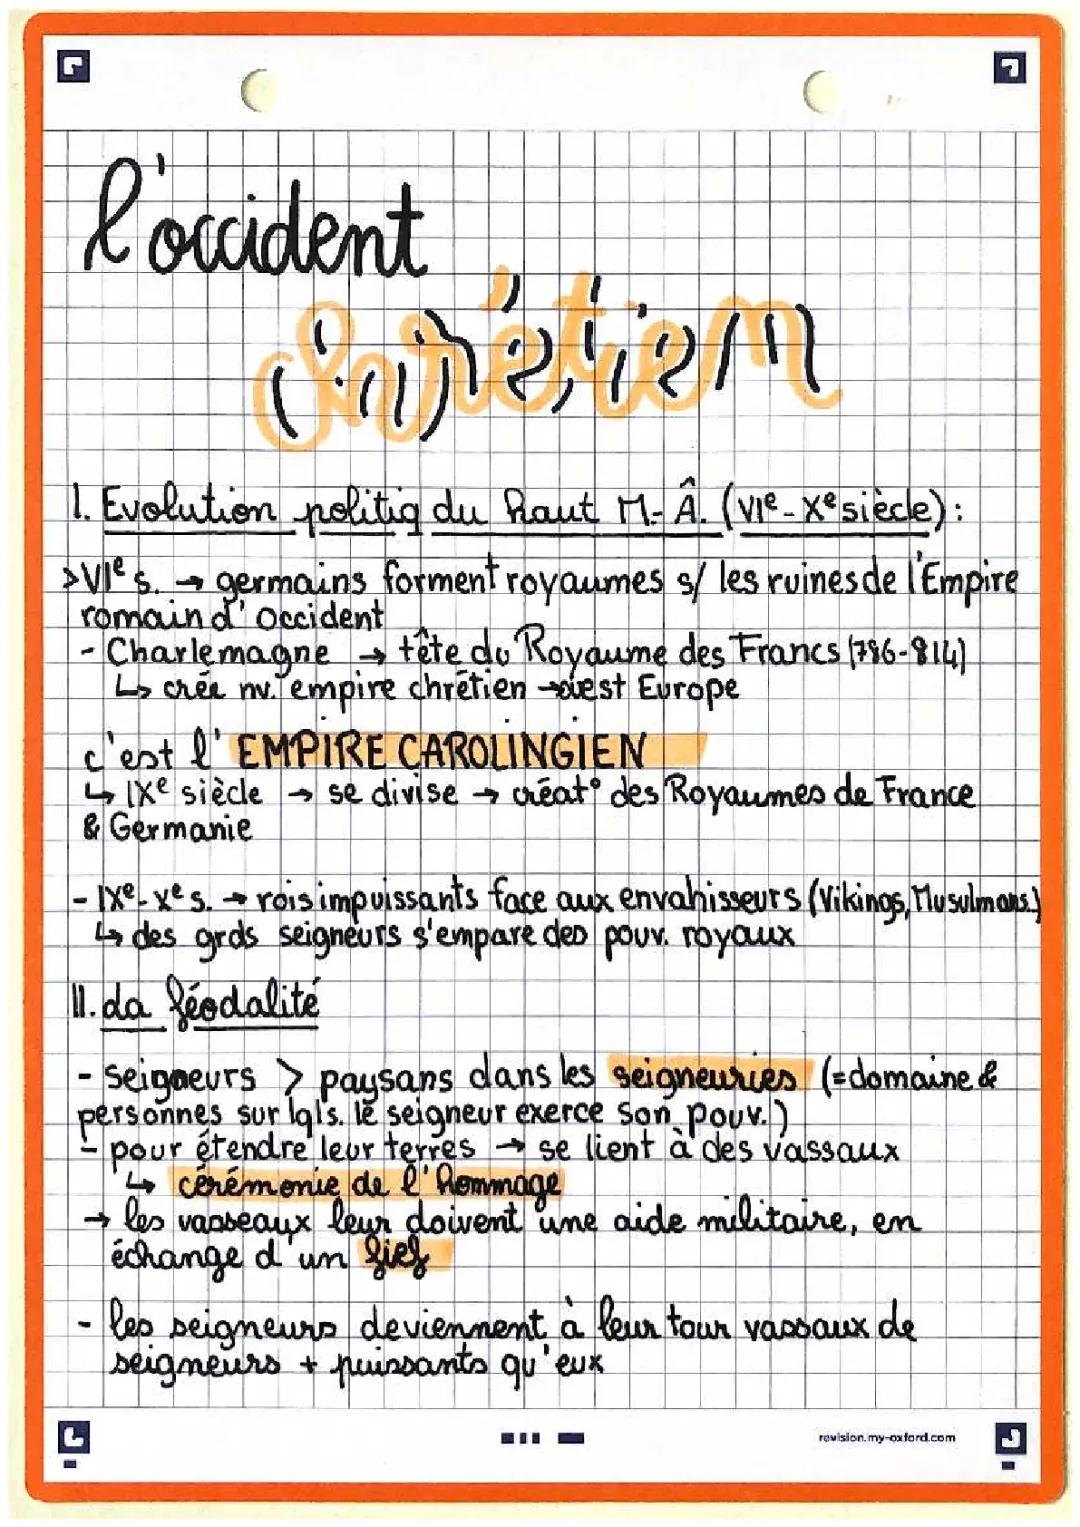 l'occident
chrétien
I. Evolution politiq du haut M-Â. (VIe-Xe siècle) :
>VIe s. → germains forment royaumes s/ les ruines de l'Empire
romain d'occident
- Charlemagne → tête du Royaume des Francs (786-814)
↳ crée nv. empire chrétien → ouest Europe
c'est l'EMPIRE CAROLINGIEN
↳ IXe siècle → se divise → créat° des Royaumes de France
& Germanie
- IXe-Xe s. → rois impuissants face aux envahisseurs (Vikings, Musulmans.)
↳ des grds seigneurs s'empare des pouv. royaux
II. La féodalité
- seigneurs > paysans dans les seigneuries (=domaine &
personnes sur lqls. le seigneur exerce son pouv.)
- pour étendre leur terres → se lient à des vassaux
↳ cérémonie de l'hommage
→ les vasseaux leur doivent une aide militaire, en
échange d'un fief
- les seigneurs deviennent à leur tour vassaux de
seigneurs + puissants qu'eux
revision.my-oxford.com